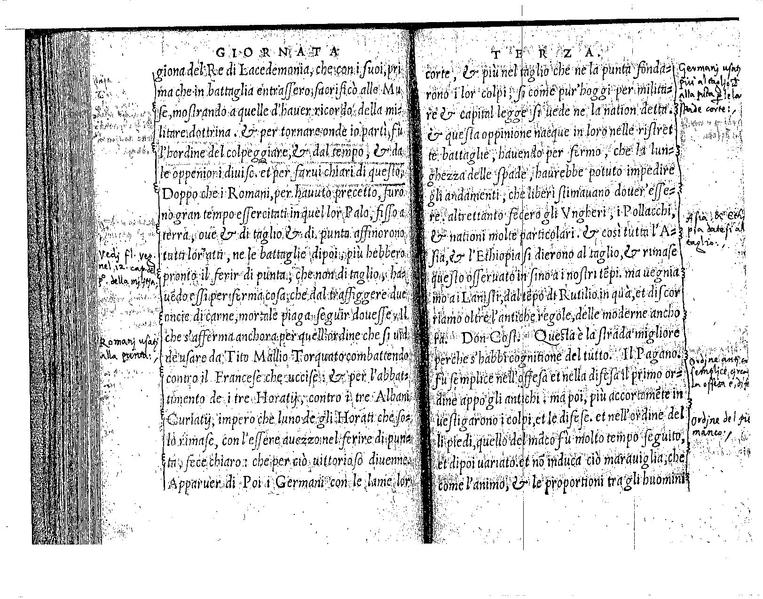 GIORNATA
giona del Re di Lacedemonia, che con i suoi, pri
ma che in battaglia entrassero, sacrificò alle Mu
se, mostrando a quelle d'hauer ricordo della mi-
litare dottrina. & per tornare onde io partì, fu
l'hordine del colpeggiare, & dal tempo, & da
le oppenioni diuiso. et per farui chiari di questo,
Doppo che i Romani, per hauuto precetto, furo
nò gran tempo essercitati in quel lor Palo, fisso a
terra, oue & di taglio & di punta affinorono
tutti lor atti, ne le battaglie dipoi, più hebbero
pronto il ferir di punta, che non di taglio, ha
uēdo essi per ferma cosa, che dal traffiggere due
oncie di carne, mortale piaga seguir douesse, Il
che s'afferma anchora per quell'ordine che si uid
de usare da Tito Mallio Torquato combattendo
contro il Francese che uccise; & per l'abbat-
timento de i tre Horatij, contro i tre Albani
Curiatij, impero che luno de gli Horati che so-
lo rimase, con l'essere auezzo nel ferire di pun-
ta, fece chiaro: che per ciò uittorioso diuenne.
Apparuer di Poi i Germani con le lame lor
Vedj fl. veg.
nel 12. cap. del
p.° della militia,
Romanj usati
alla punta:,
TERZA.
corte, & più nel taglio che ne la punta fonda-
rono i lor colpi; si come pur'hoggi per milita-
re & capital legge si uede ne la nation detta.
& questa oppinione nacque in loro nelle ristret
te battaglie, hauendo per fermo, che la lun-
ghezza delle spade, haurebbe potuto impedire
gli andamenti, che liberi stimauano douer esse-
re. altrettanto fecero gli Vngheri, i Pollacchi,
& nationi molte particolari. & così tutta l'A-
sia, & l'Ethiopia si dierono al taglio, & rimase
questo osseruato in sino a i nostri tēpi. ma uegnia
mo a i Lanisti, dal tēpo di Rutilio in quà, et discor
riamo oltre l'antiche regole, delle moderne ancho
ra. Don Cost. Questa è la strada migliore
perche s'habbi cognitione del tutto. Il Pagano.
Fu semplice nell'offesa et nella difesa il primo or-
dine appo gli antichi. ma poi, più accortamēte in
uestigarono i colpi, et le difese. et nell'ordine del
li piedi, quello del māco fu molto tempo seguito,
et dipoi uariato. et nō induca ciò marauiglia, che
come l'animo, & le proportioni tra gli huomini
Germanj usati
più al taglio
alla punta
spade corte:,
Asia, &
taglio.,
Ordine
semplice
la offesa e
Ordine del piè
manco.,